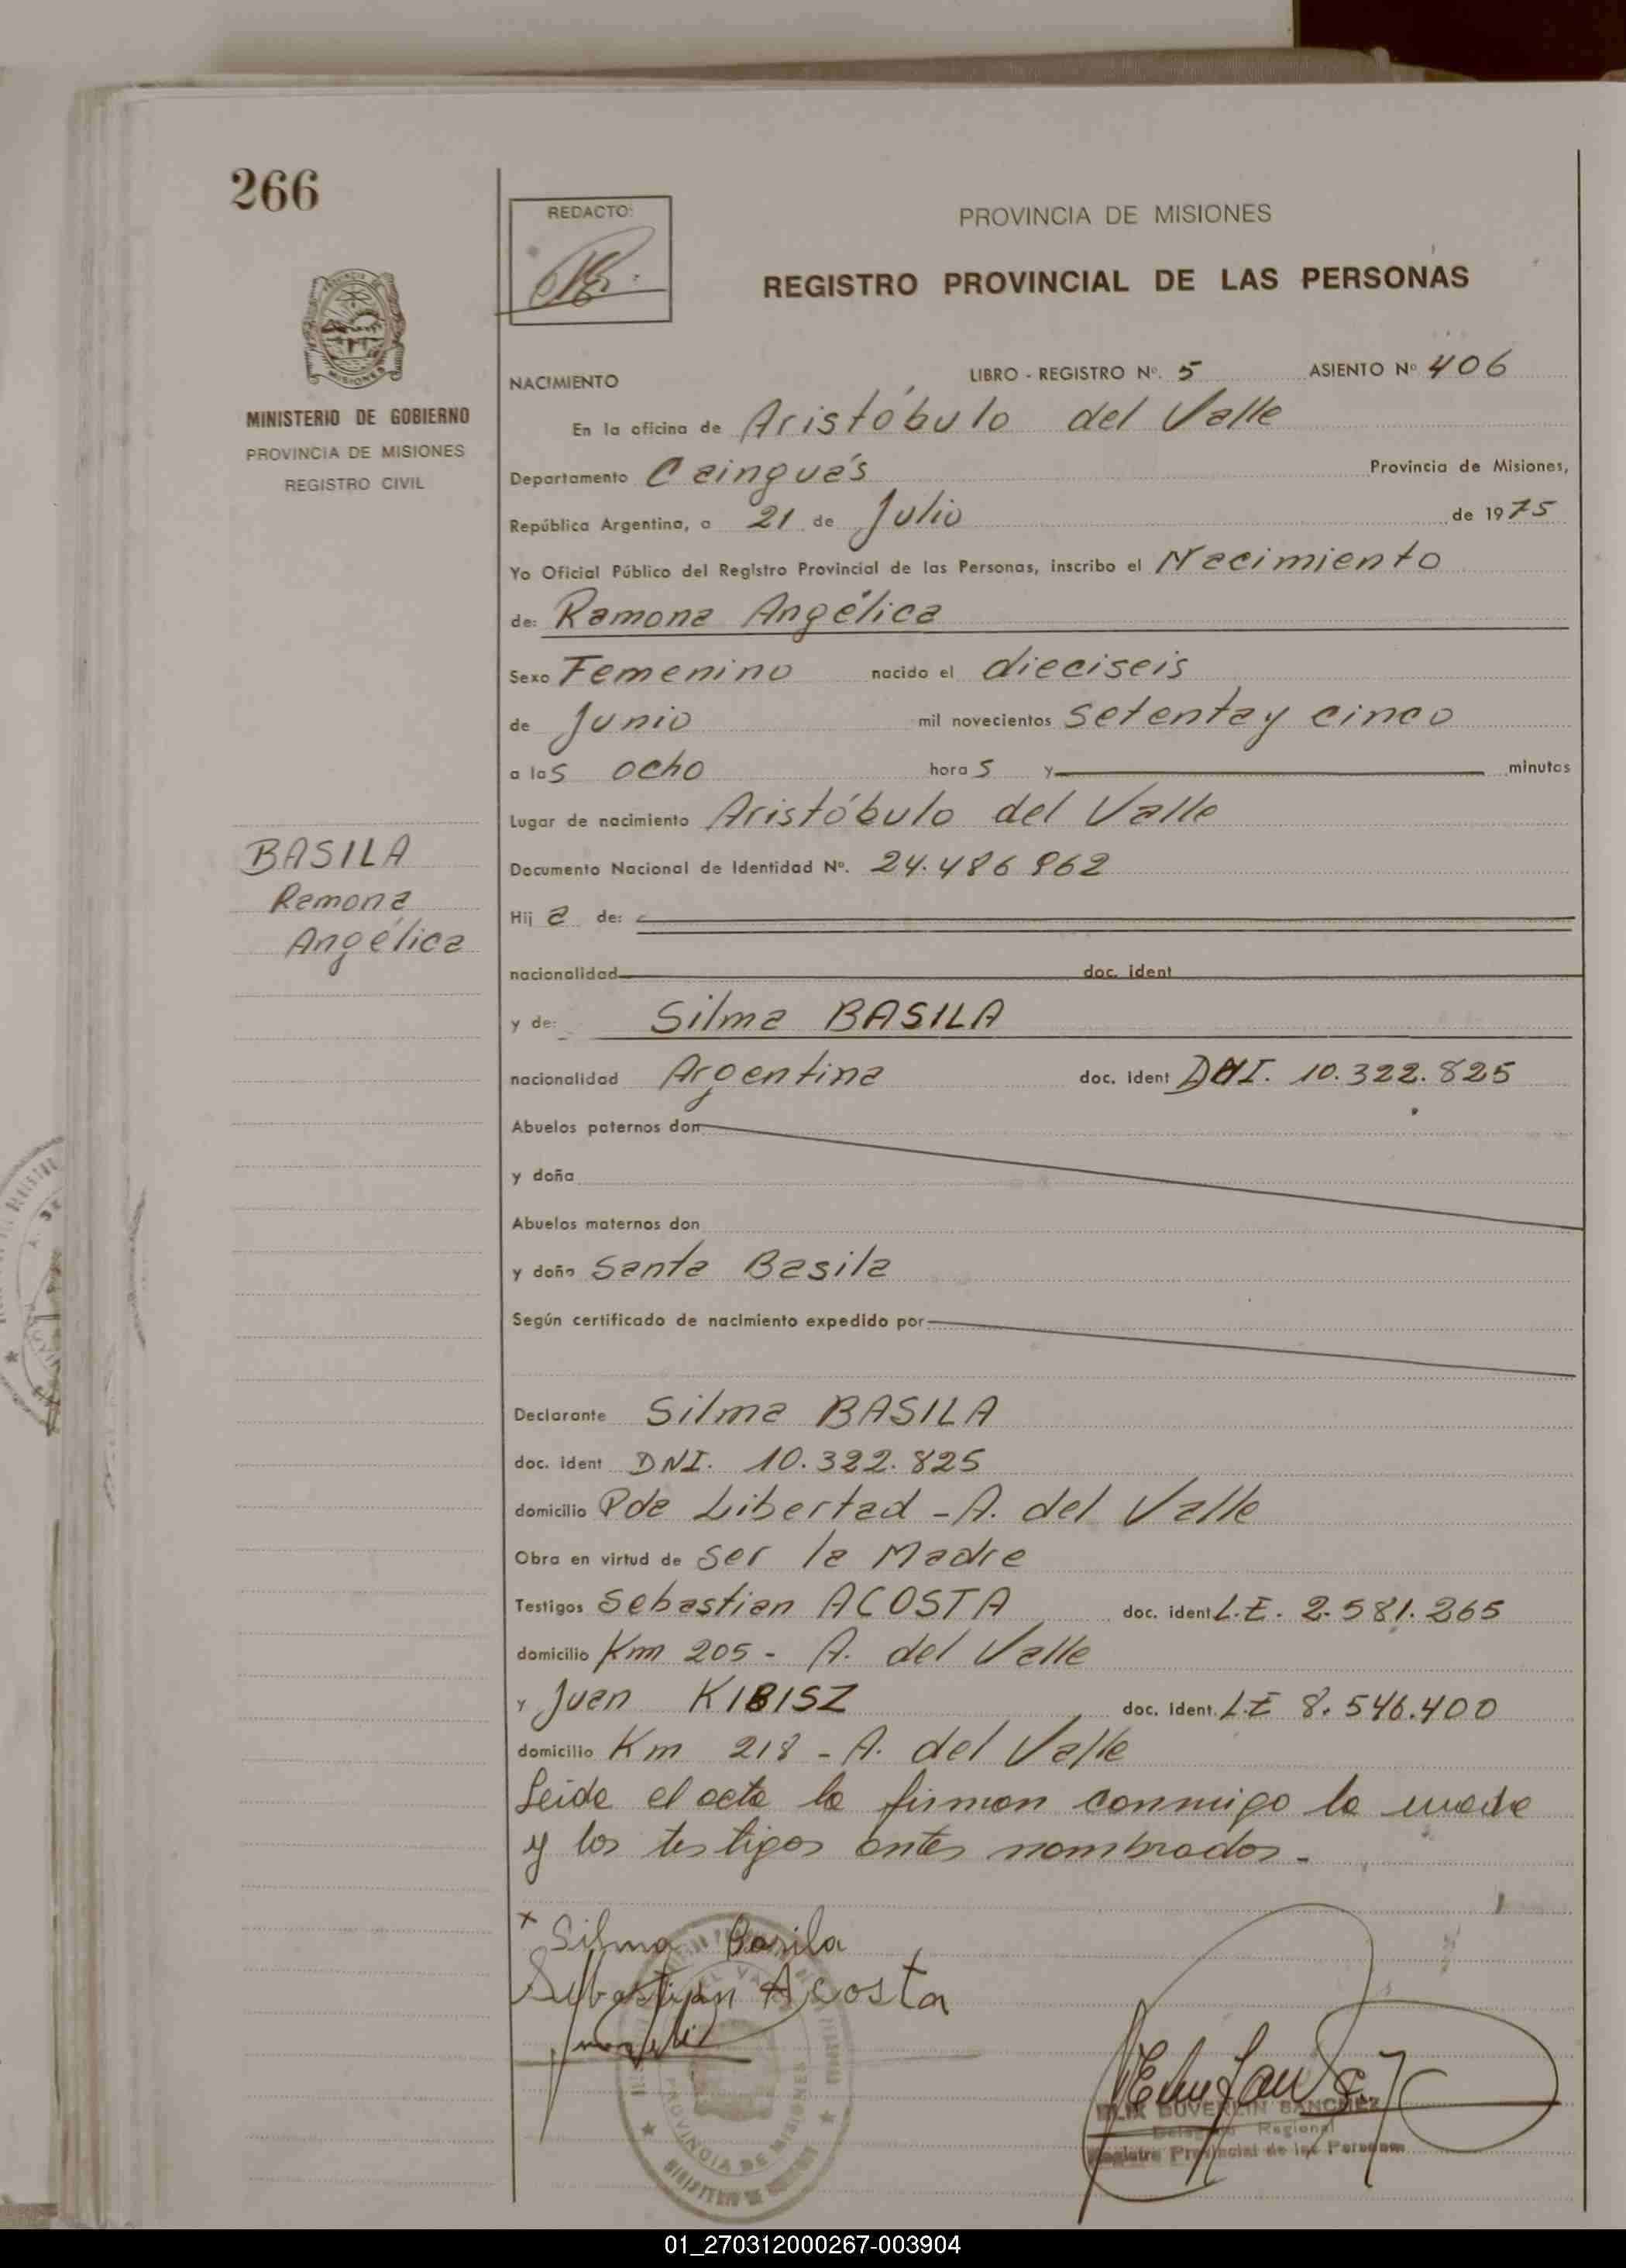 266
REDACTO:
PROVINCIA DE MISIONES
REGISTRO PROVINCIAL DE LAS PERSONAS
MISIONES
MINISTERIO DE GOBIERNO
PROVINCIA DE MISIONES
REGISTRO CIVIL
NACIMIENTO LIBRO - REGISTRO Nº. 5 ASIENTO Nº 406
En la oficina de Aristóbulo del Valle
Departamento Cainguás Provincia de Misiones,
República Argentina, a 21 de Julio de 1975
Yo Oficial Público del Registro Provincial de las Personas, inscribo el Nacimiento
de: Ramona Angélica
Sexo Femenino nacido el dieciseis
de Junio mil novecientos setenta y cinco
a las ocho horas y minutos
Lugar de nacimiento Aristóbulo del Valle
BASILA
Ramona
Angélica
Documento Nacional de Identidad Nº. 24.486962
Hija de:
nacionalidad doc. ident
y de: Silma BASILA
nacionalidad Argentina doc. ident DNI. 10.322.825
Abuelos paternos don
y doña
Abuelos maternos don
y doña Santa Basila
Según certificado de nacimiento expedido por
Declarante Silma BASILA
doc. ident DNI. 10.322.825
domicilio Pda Libertad - A. del Valle
Obra en virtud de ser la Madre
Testigos Sebastian ACOSTA doc. ident L.E. 2.581.265
domicilio Km 205 - A. del Valle
y Juan KIBISZ doc. ident. L.E 8.546.400
domicilio Km 218 - A. del Valle
Leida el acta la firman conmigo la madre
y los testigos antes nombrados.-
x Silma Basila
Sebastian Acosta
PROVINCIA DE MISIONES
DUVERLIN SANCHEZ
Regional
Registro Provincial de las Personas
01_270312000267-003904